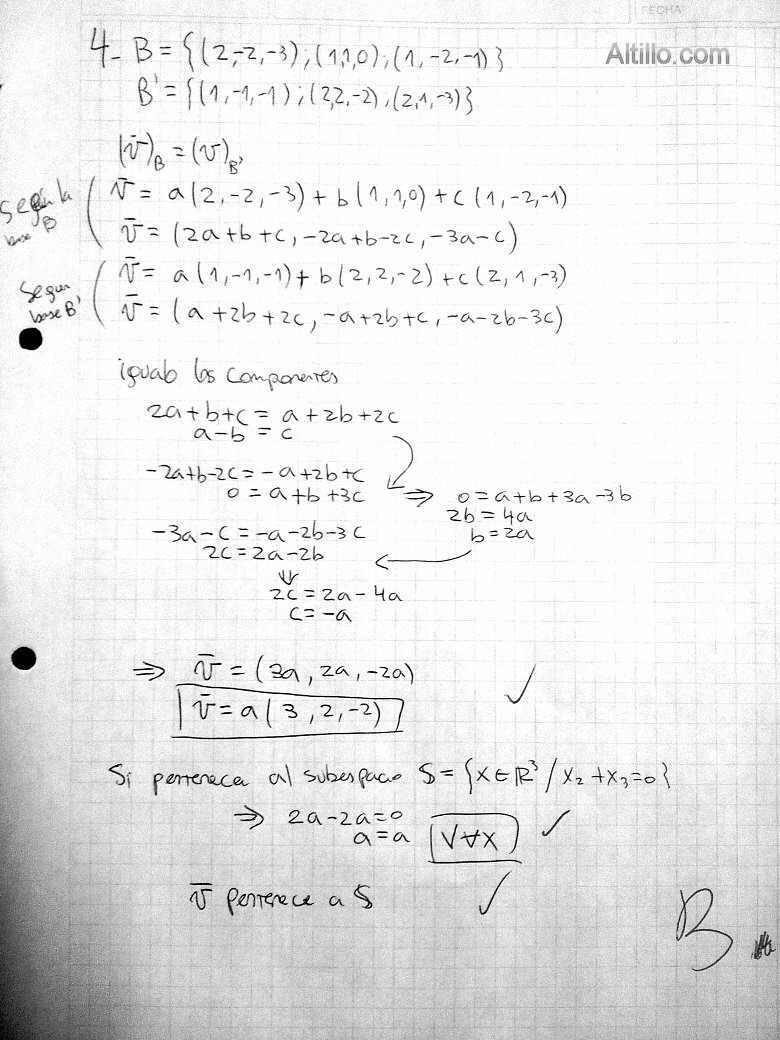 FECHA
Altillo.com
4- B = {(2,-2,-3);(1,1,0);(1,-2,-1)}
B' = {(1,-1,-1);(2,2,-2),(2,1,-3)}
(v̄)_B = (v)_B'
Según la base B
v̄ = a(2,-2,-3) + b(1,1,0) + c(1,-2,-1)
v̄ = (2a+b+c, -2a+b-2c, -3a-c)
Segun base B'
v̄ = a(1,-1,-1) + b(2,2,-2) + c(2,1,-3)
v̄ = (a+2b+2c, -a+2b+c, -a-2b-3c)
igualo los componentes
2a+b+c = a+2b+2c
a-b = c
-2a+b-2c = -a+2b+c
0 = a+b+3c ⇒ 0 = a+b+3a-3b
2b = 4a
b = 2a
-3a-c = -a-2b-3c
2c = 2a-2b
⇓
2c = 2a-4a
c = -a
⇒ v̄ = (3a, 2a, -2a)
v̄ = a(3, 2, -2)
Si pertenece al subespacio S = {x∈ℝ³ / x₂+x₃=0}
⇒ 2a-2a=0
a=a √∀x
v̄ pertenece a S
B